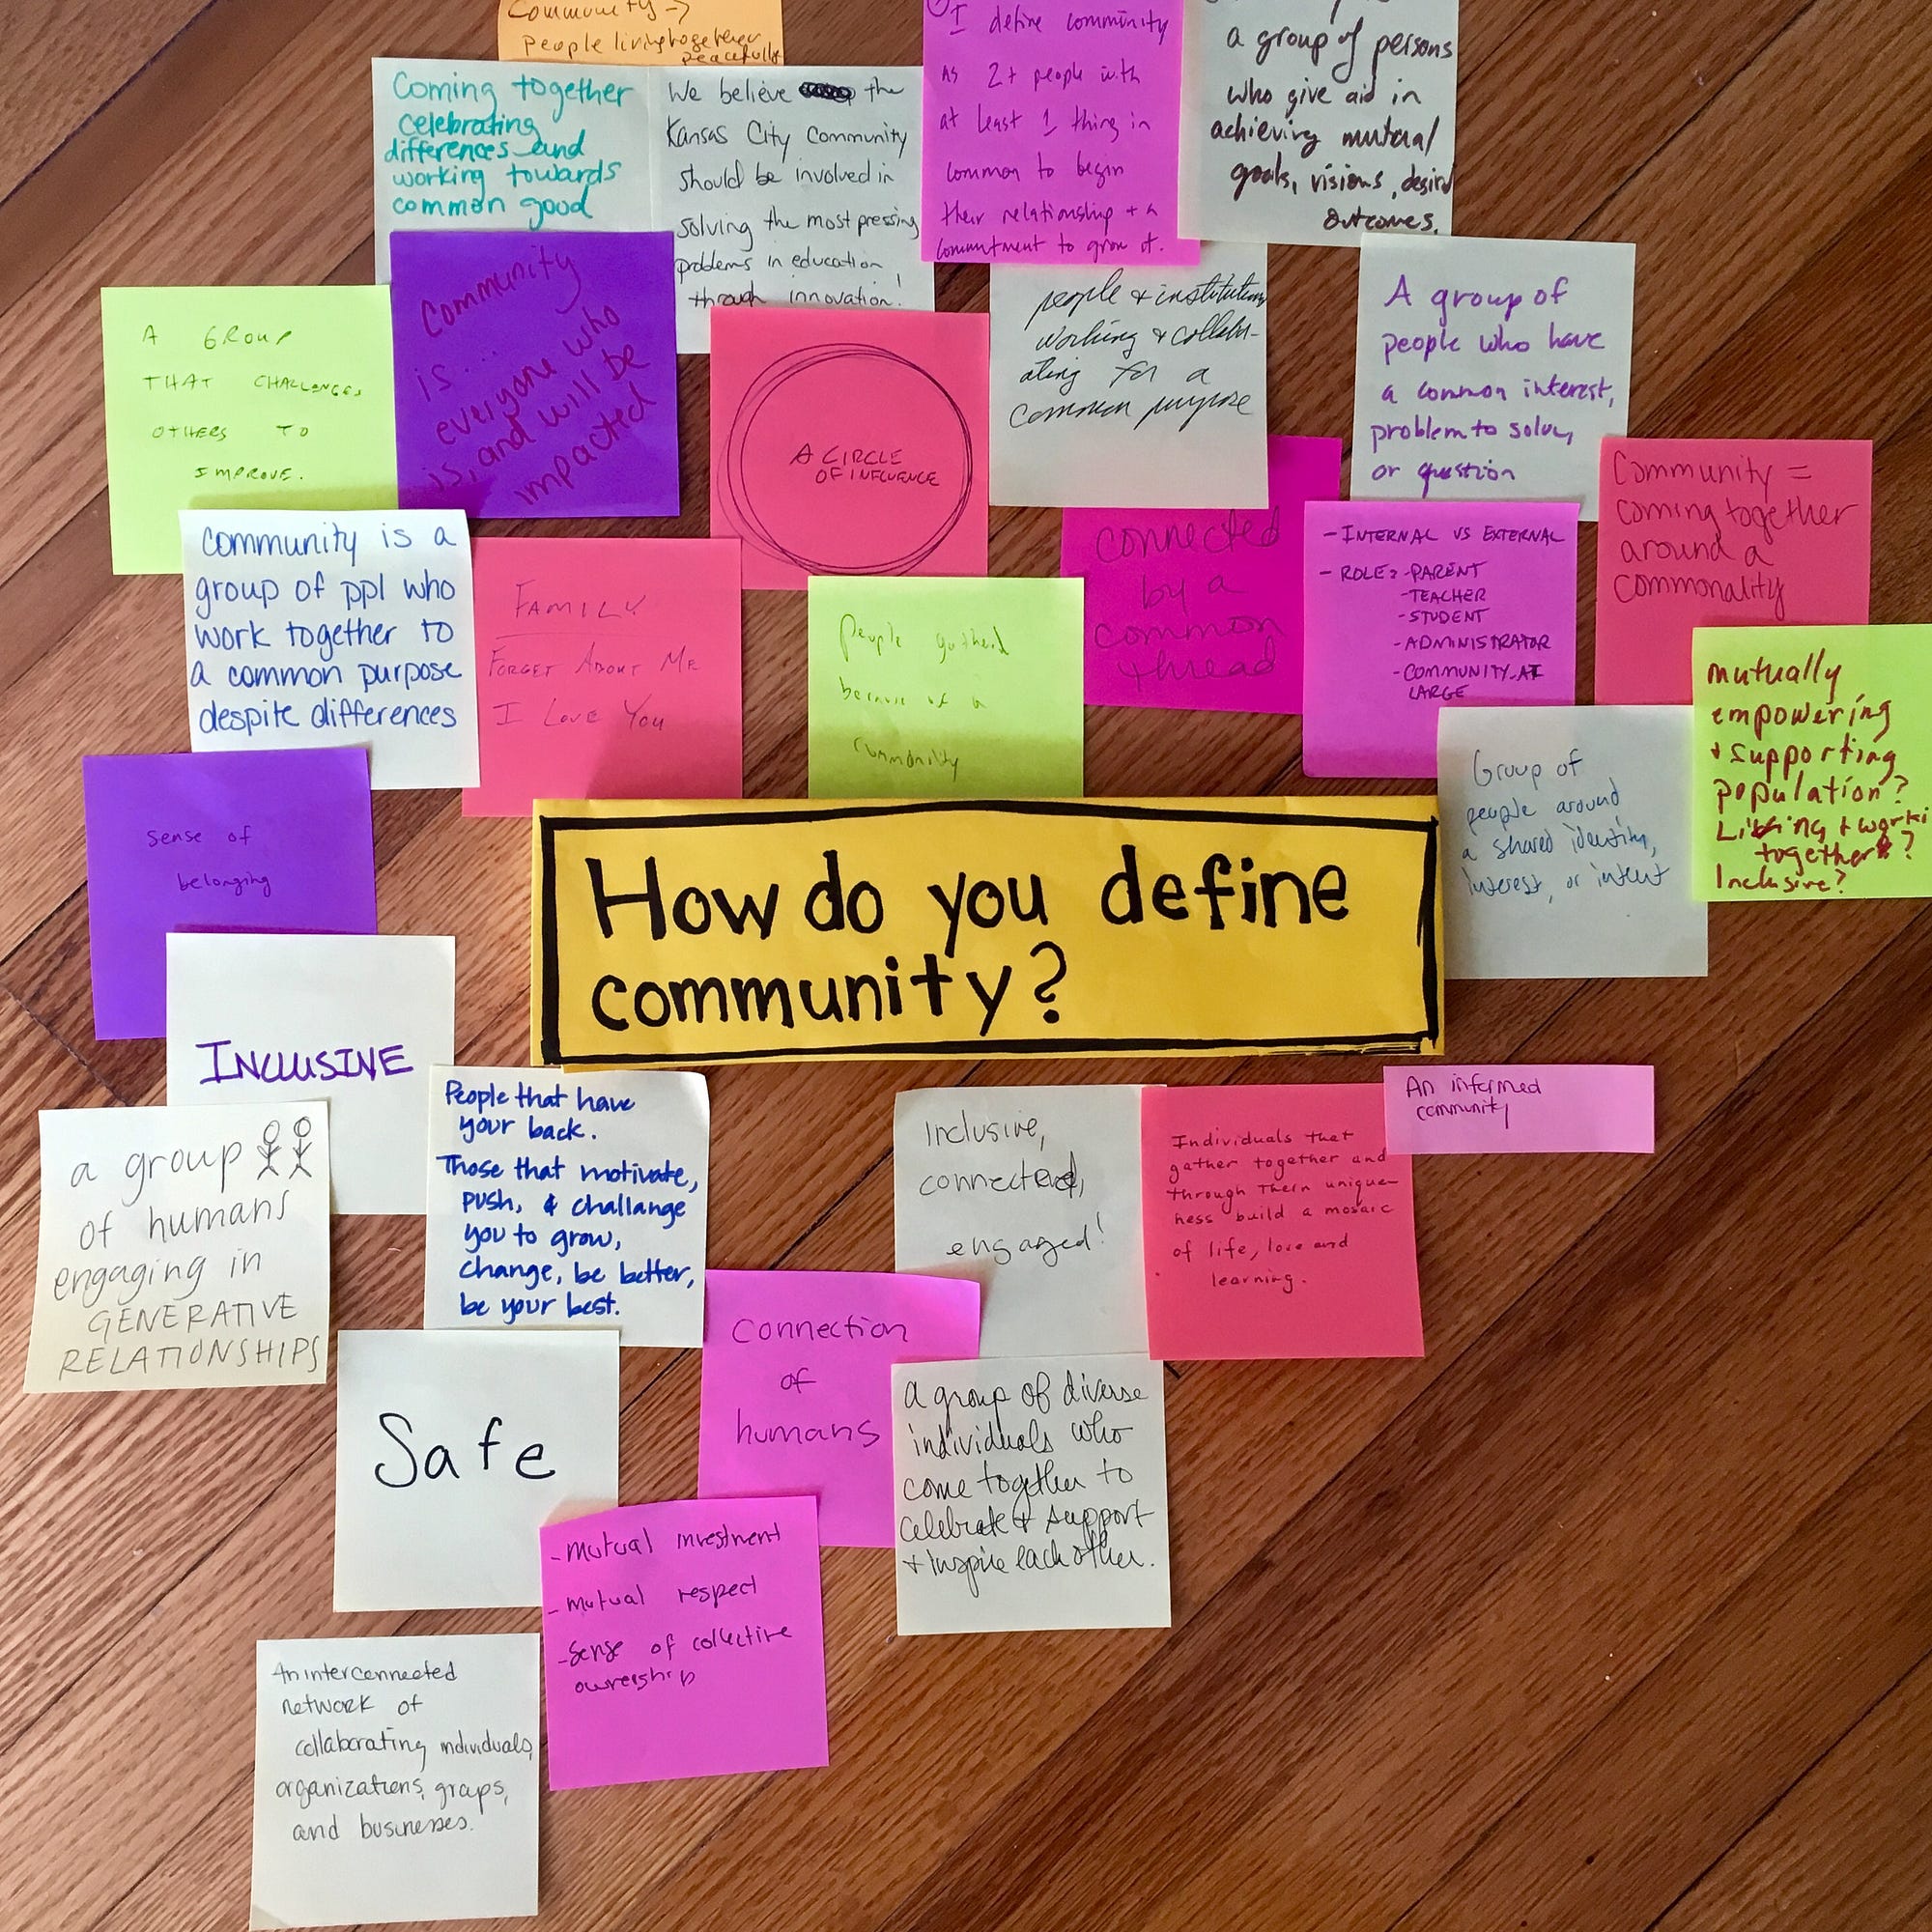 Community →
people living together
peacefully
Coming together
celebrating
differences and
working towards
common good
We believe the
Kansas City Community
should be involved in
solving the most pressing
problems in education
through innovation!
I define community
as 2+ people with
at least 1 thing in
common to begin
their relationship + a
commitment to grow it.
a group of persons
who give aid in
achieving mutual
goals, visions, desired
outcomes.
A GROUP
THAT CHALLENGES
OTHERS TO
IMPROVE.
Community
is...
everyone who
is, and will be
impacted
A CIRCLE
OF INFLUENCE
people & institutions
working & collabor-
ating for a
common purpose
A group of
people who have
a common interest,
problem to solve,
or question
Community =
coming together
around a
commonality
community is a
group of ppl who
work together to
a common purpose
despite differences
FAMILY
FORGET ABOUT ME
I LOVE YOU
People gathered
because of a
commonality
connected
by a
common
thread
- INTERNAL VS EXTERNAL
- ROLE? - PARENT
- TEACHER
- STUDENT
- ADMINISTRATOR
- COMMUNITY AT
LARGE
mutually
empowering
+ supporting
population?
Living + worki
together?
Inclusive?
Group of
people around
a shared identity,
interest, or intent
sense of
belonging
How do you define
community?
INCLUSIVE
a group
of humans
engaging in
GENERATIVE
RELATIONSHIPS
People that have
your back.
Those that motivate,
push, & challange
you to grow,
change, be better,
be your best.
Inclusive,
connected,
engaged!
Individuals that
gather together and
through their unique-
ness build a mosaic
of life, love and
learning.
An informed
community
Connection
of
humans
Safe
a group of diverse
individuals who
come together to
celebrate + support
+ inspire each other.
- Mutual investment
- mutual respect
- sense of collective
ownership
An interconnected
network of
collaborating individuals,
organizations, groups,
and businesses.